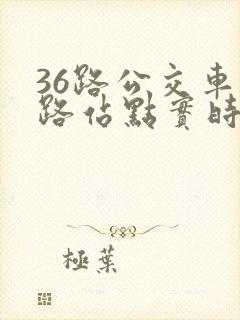 36路公交車
路佔點實時
極葉